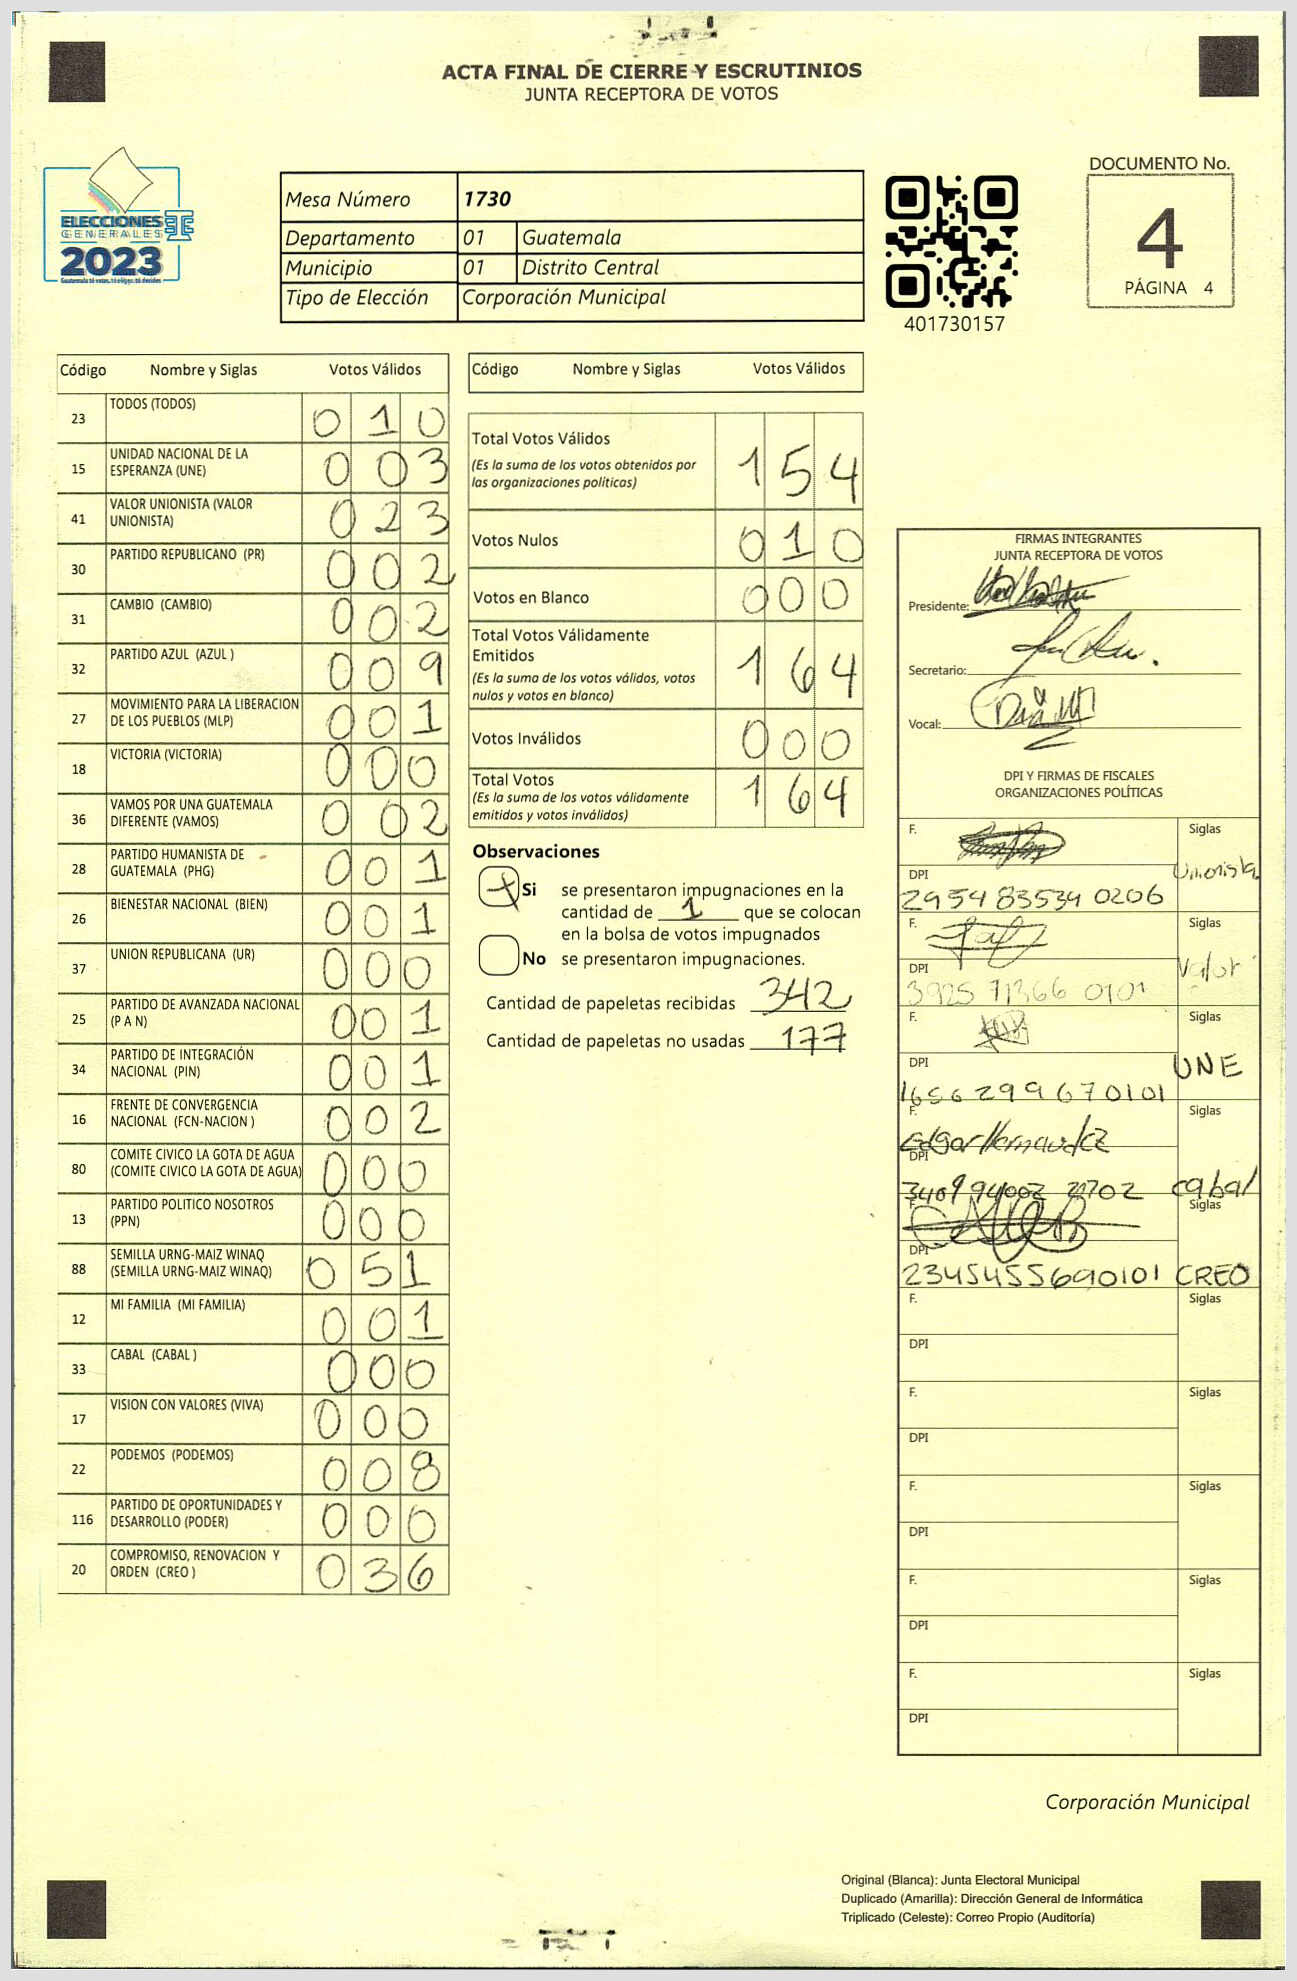 ACTA FINAL DE CIERRE Y ESCRUTINIOS
JUNTA RECEPTORA DE VOTOS
ELECCIONES
GENERALES
2023
Mesa Número 1730
Departamento 01 Guatemala
Municipio 01 Distrito Central
Tipo de Elección Corporación Municipal
401730157
DOCUMENTO No.
4
PÁGINA 4
Código Nombre y Siglas Votos Válidos
23 TODOS (TODOS) 0 1 0
15 UNIDAD NACIONAL DE LA ESPERANZA (UNE) 0 0 3
41 VALOR UNIONISTA (VALOR UNIONISTA) 0 2 3
30 PARTIDO REPUBLICANO (PR) 0 0 2
31 CAMBIO (CAMBIO) 0 0 2
32 PARTIDO AZUL (AZUL ) 0 0 9
27 MOVIMIENTO PARA LA LIBERACION DE LOS PUEBLOS (MLP) 0 0 1
18 VICTORIA (VICTORIA) 0 0 0
36 VAMOS POR UNA GUATEMALA DIFERENTE (VAMOS) 0 0 2
28 PARTIDO HUMANISTA DE GUATEMALA (PHG) 0 0 1
26 BIENESTAR NACIONAL (BIEN) 0 0 1
37 UNION REPUBLICANA (UR) 0 0 0
25 PARTIDO DE AVANZADA NACIONAL (P A N) 0 0 1
34 PARTIDO DE INTEGRACIÓN NACIONAL (PIN) 0 0 1
16 FRENTE DE CONVERGENCIA NACIONAL (FCN-NACION ) 0 0 2
80 COMITE CIVICO LA GOTA DE AGUA (COMITE CIVICO LA GOTA DE AGUA) 0 0 0
13 PARTIDO POLITICO NOSOTROS (PPN) 0 0 0
88 SEMILLA URNG-MAIZ WINAQ (SEMILLA URNG-MAIZ WINAQ) 0 5 1
12 MI FAMILIA (MI FAMILIA) 0 0 1
33 CABAL (CABAL ) 0 0 0
17 VISION CON VALORES (VIVA) 0 0 0
22 PODEMOS (PODEMOS) 0 0 8
116 PARTIDO DE OPORTUNIDADES Y DESARROLLO (PODER) 0 0 0
20 COMPROMISO, RENOVACION Y ORDEN (CREO ) 0 3 6
Código Nombre y Siglas Votos Válidos
Total Votos Válidos 1 5 4
(Es la suma de los votos obtenidos por
las organizaciones políticas)
Votos Nulos 0 1 0
Votos en Blanco 0 0 0
Total Votos Válidamente
Emitidos 1 6 4
(Es la suma de los votos válidos, votos
nulos y votos en blanco)
Votos Inválidos 0 0 0
Total Votos 1 6 4
(Es la suma de los votos válidamente
emitidos y votos inválidos)
Observaciones
Si se presentaron impugnaciones en la
cantidad de 1 que se colocan
en la bolsa de votos impugnados
No se presentaron impugnaciones.
Cantidad de papeletas recibidas 342
Cantidad de papeletas no usadas 177
FIRMAS INTEGRANTES
JUNTA RECEPTORA DE VOTOS
Presidente:
Secretario:
Vocal:
DPI Y FIRMAS DE FISCALES
ORGANIZACIONES POLÍTICAS
F. Siglas
Unionista
DPI
2954 83534 0206
F. Siglas
Valor
DPI
3925 71366 0101
F. Siglas
UNE
DPI
1656 29967 0101
F. Siglas
Edgar Hernandez
DPI
cabal
F. Siglas
DPI
2345455690101 CREO
F. Siglas
DPI
F. Siglas
DPI
F. Siglas
DPI
F. Siglas
DPI
F. Siglas
DPI
Corporación Municipal
Original (Blanca): Junta Electoral Municipal
Duplicado (Amarilla): Dirección General de Informática
Triplicado (Celeste): Correo Propio (Auditoría)